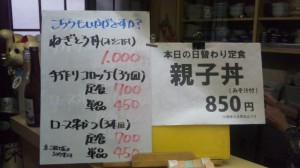 こちらもいかがですか?
ねぎとろ丼
1,000
手作りコロッケ(3ヶ)
定食 700
単品 450
ロースかつ
定食 700
単品 450
本日の日替わり定食
親子丼
(みそ汁付)
850円